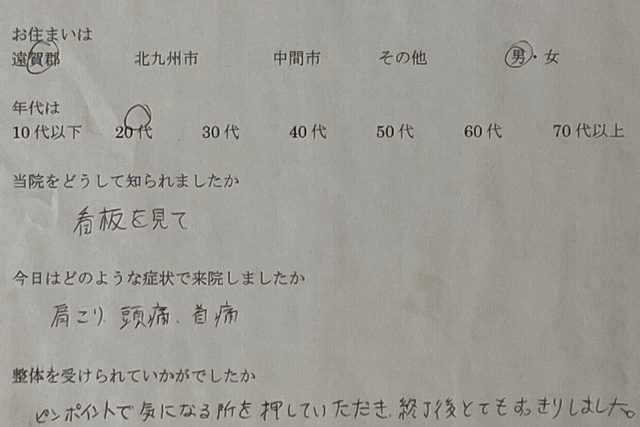 お住まいは
遠賀郡 北九州市 中間市 その他 男・女
年代は
10代以下 20代 30代 40代 50代 60代 70代以上
当院をどうして知られましたか
看板を見て
今日はどのような症状で来院しましたか
肩こり、頭痛、首痛
整体を受けられていかがでしたか
ピンポイントで気になる所を押していただき、終了後とてもすっきりしました。